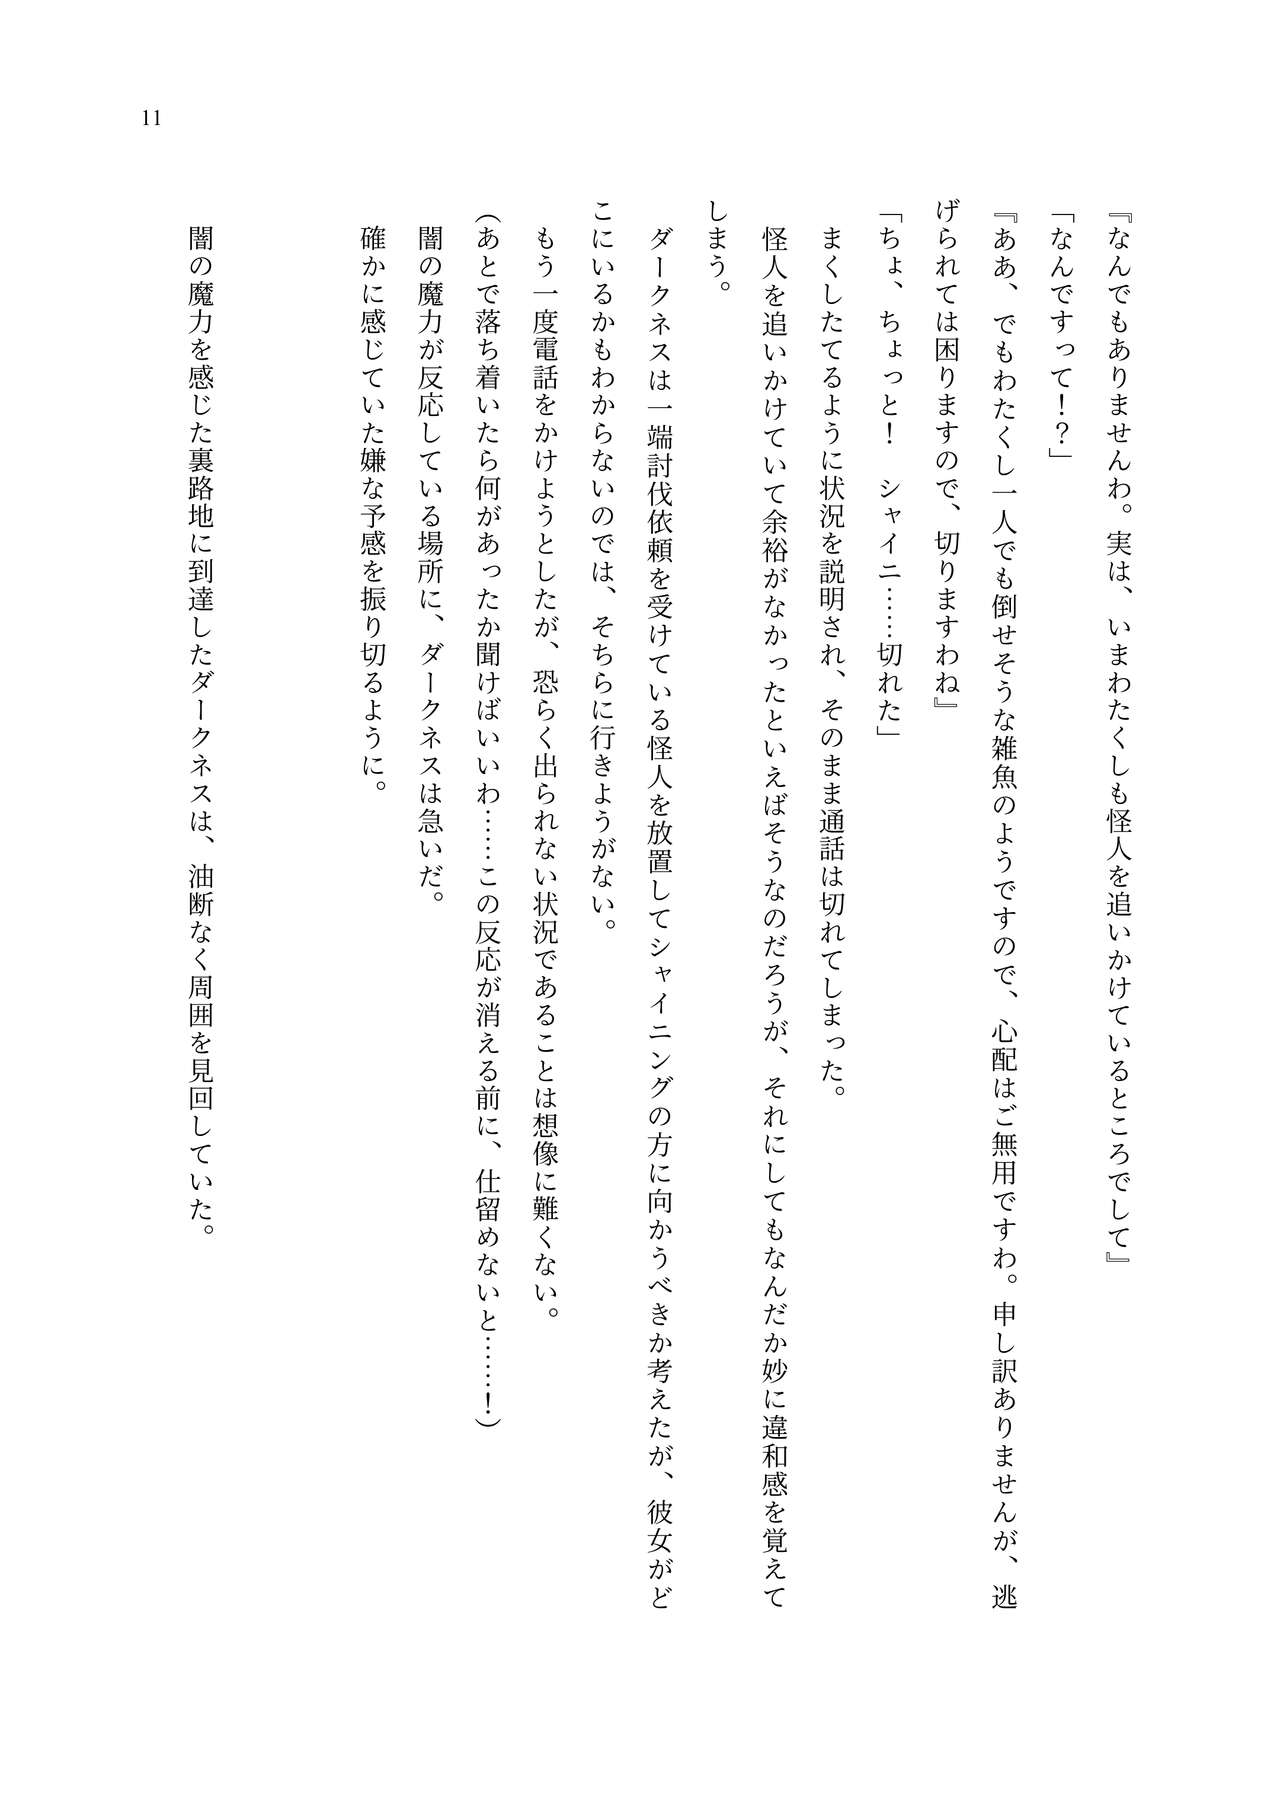 11
『なんでもありませんわ。実は、いまわたくしも怪人を追いかけているところでして』
「なんですって！？」
『ああ、でもわたくし一人でも倒せそうな雑魚のようですので、心配はご無用ですわ。申し訳ありませんが、逃
げられては困りますので、切りますわね』
「ちょ、ちょっと！　シャイニ……切れた」
まくしたてるように状況を説明され、そのまま通話は切れてしまった。
怪人を追いかけていて余裕がなかったといえばそうなのだろうが、それにしてもなんだか妙に違和感を覚えて
しまう。
ダークネスは一端討伐依頼を受けている怪人を放置してシャイニングの方に向かうべきか考えたが、彼女がど
こにいるかもわからないのでは、そちらに行きようがない。
もう一度電話をかけようとしたが、恐らく出られない状況であることは想像に難くない。
（あとで落ち着いたら何があったか聞けばいいわ……この反応が消える前に、仕留めないと……！）
闇の魔力が反応している場所に、ダークネスは急いだ。
確かに感じていた嫌な予感を振り切るように。
闇の魔力を感じた裏路地に到達したダークネスは、油断なく周囲を見回していた。